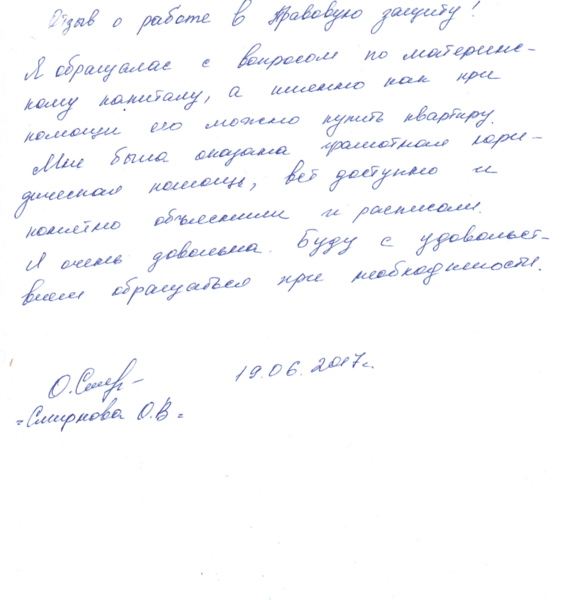 Отзыв о работе в Правовую защиту!
Я обращалас с вопросом по материнс-
кому капиталу, а именно как при
помощи его можно купить квартиру.
Мне была оказана грамотная юри-
дическая помощь, всё доступно и
понятно объяснили и расписали.
Я очень довольна. Буду с удовольст-
вием обращаться при необходимости.
О.Смир-
19.06.2017г.
=Смирнова О.В=